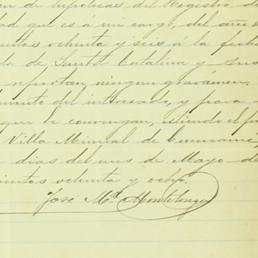 de hipotecas del Registro de
dad que es á mi cargo, del año
ochenta y seis á la fecha
de Santa Catalina y sus
reportan ningun gravamen.
del interesado, y para
que le convengan, estiendo el
Villa Mineral de
dias del mes de Mayo de
cientos ochenta y ocho.
José Ma. Montelongo